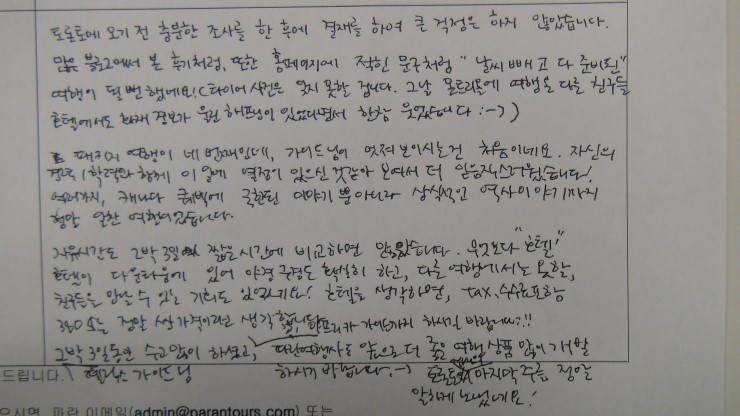 토론토에 오기 전 충분한 조사를 한 후에 결재를 하여 큰 걱정은 하지 않았습니다.
많은 블로그에서 본 후기처럼, 또한 홈페이지에 적힌 문구처럼 "날씨 빼고 다 준비된"
여행이 될 뻔 했네요! (타이어 사건은 잊지 못할 겁니다. 그날 몬트리올에 여행온 다른 친구들
호텔에서도 화재 경보가 울린 해프닝이 있었다면서 한참 웃었습니다 :-))
패키지 여행이 네 번째인데, 가이드님이 멋져보이시는건 처음이네요. 자신의
경력/학력과 함께 이 일에 열정이 있으신 것같아 보여서 더 믿음직스러웠습니다!
여러가지, 캐나다 퀘벡에 국한된 이야기 뿐 아니라 상식적인 역사이야기까지
정말 알찬 여행이었습니다.
자유시간도 2박 3일의 짧은시간에 비교하면 많았습니다. 무엇보다 "호텔"
호텔이 다운타운에 있어 야경 구경도 확실히 하고, 다른 여행객들은 못할,
친구들을 만날 수 있는 기회도 있었네요! 호텔을 생각하면, tax, 수수료포함
정말 싼 가격이라고 생각합니다. 가이드까지 하시길 바랍니다!!
2박 3일동안 수고많이 하셨고, 파란여행사도 앞으로 더 좋은 여행 상품 많이 개발
드립니다. 가이드님 하시기 바랍니다. :-) 토론토 마지막 주를 정말
알차게 보냈네요!
으시면, 파란 이메일(admin@parantours.com) 또는